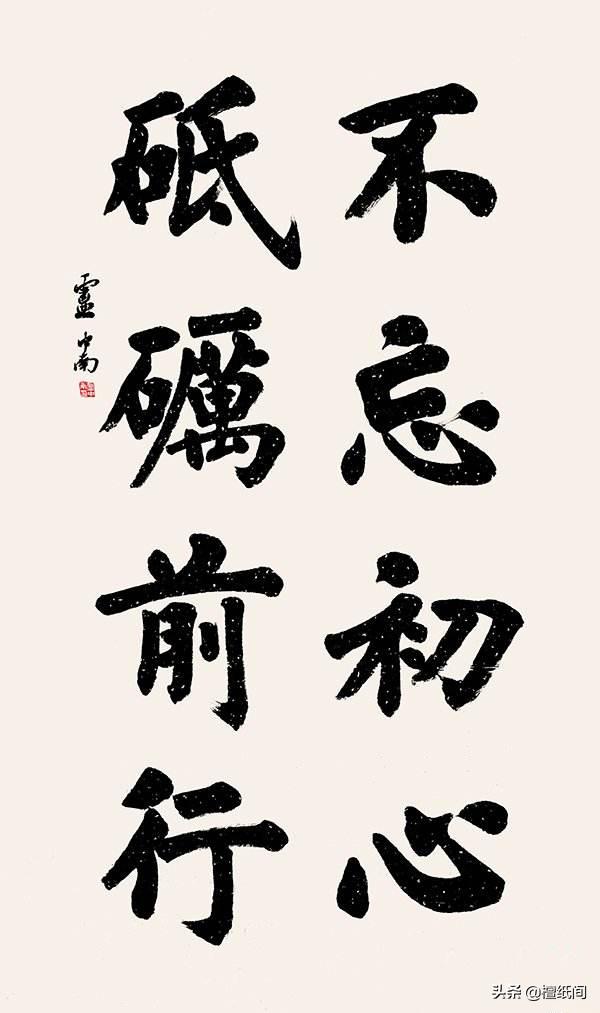 不忘初心
砥礪前行
盧中南
头条 @檀纸间